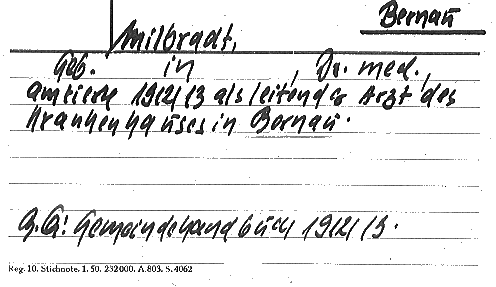 Bernau
Milbradt,
Geb. in , Dr. med.,
amtierte 1912/13 als leitender Arzt des
Krankenhauses in Bernau.
Z.G: Gemeindehandbuch 1912/13.
Reg. 10. Stichnote. 1. 50. 232000. A. 803. S. 4062